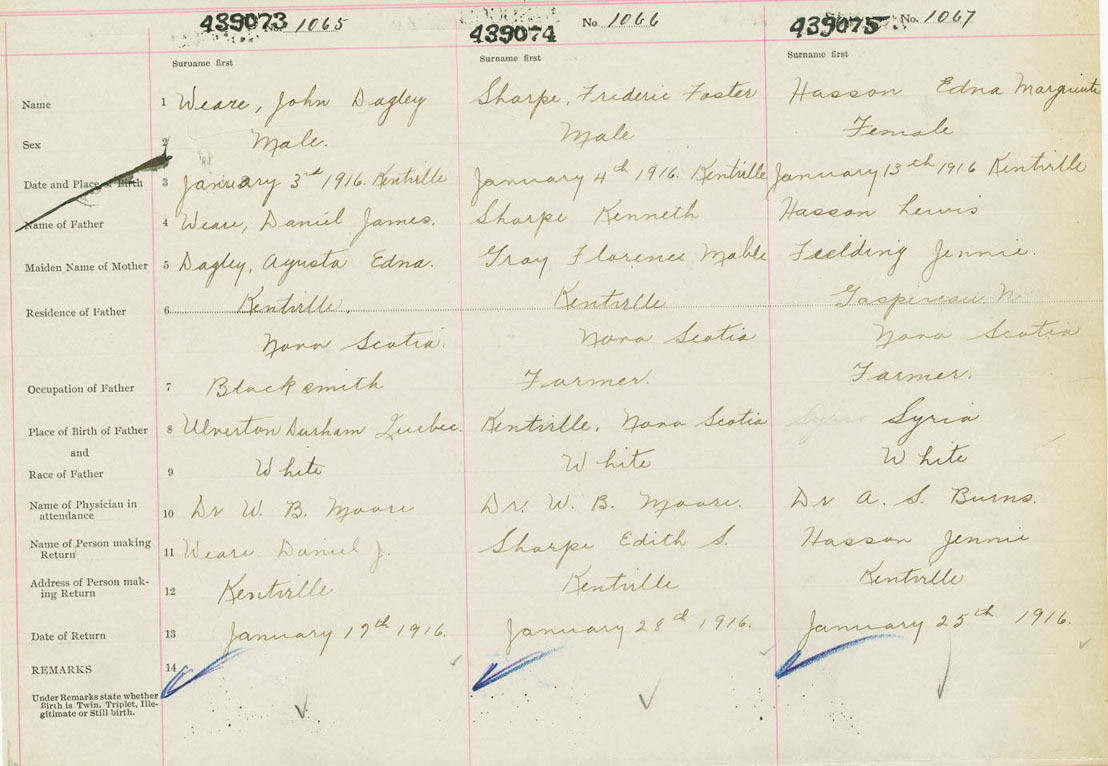 439073 No. 1065 439074 No. 1066 439075 No. 1067
Surname first Surname first Surname first
Name 1 Weare, John Dagley Sharpe, Frederic Foster Hasson Edna Marguerite
Sex 2 Male. Male Female
Date and Place of Birth 3 January 3rd 1916. Kentville January 4th 1916. Kentville January 13th 1916 Kentville
Name of Father 4 Weare, Daniel James. Sharpe Kenneth Hasson Lewis
Maiden Name of Mother 5 Dagley, Agusta Edna. Gray Florence Mable Fielding Jennie.
Residence of Father 6 Kentville, Kentville Gaspereau
Nova Scotia. Nova Scotia Nova Scotia
Occupation of Father 7 Blacksmith Farmer. Farmer.
Place of Birth of Father 8 Ulverton Durham Quebec. Kentville, Nova Scotia Syria
and
Race of Father 9 White White White
Name of Physician in
attendance 10 Dr W. B. Moore Dr. W. B. Moore. Dr A. S. Burns.
Name of Person making
Return 11 Weare Daniel J. Sharpe Edith S. Hasson Jennie
Address of Person mak-
ing Return 12 Kentville Kentville Kentville
Date of Return 13 January 19th 1916. January 28th 1916. January 25th 1916.
REMARKS 14
Under Remarks state whether
Birth is Twin, Triplet, Ille-
gitimate or Still-birth.